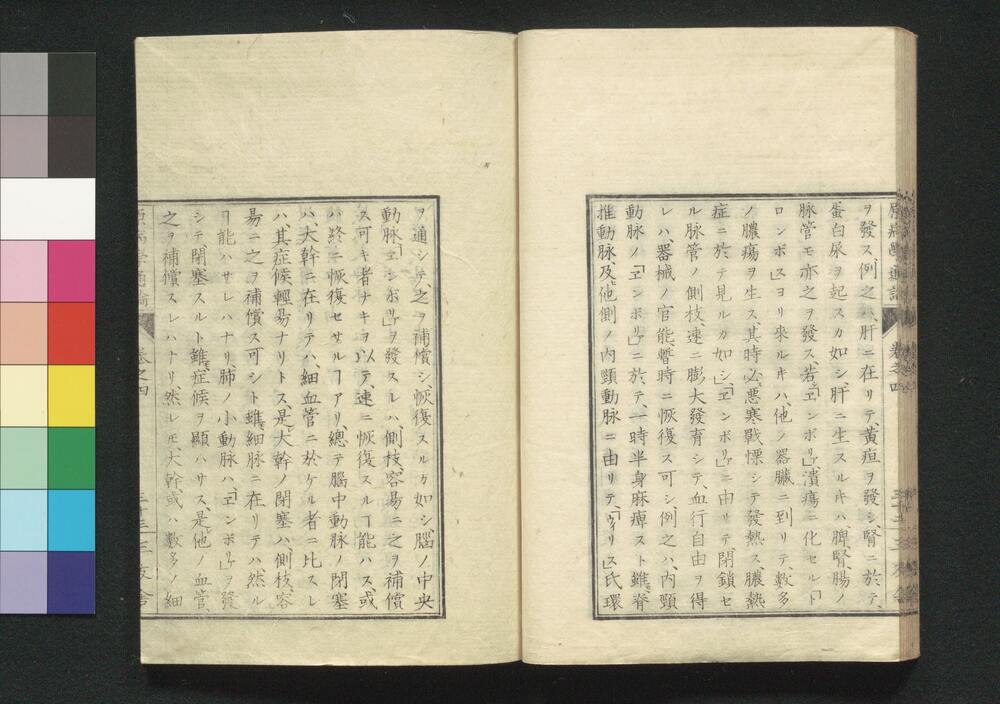 原病學通論 卷之四 三十三 文舍
ヲ發ス、例之ハ、肝ニ在リテ、黄疸ヲ發シ、腎ニ於テ、
蛋白尿ヲ起スカ如シ、肝ニ生スルキハ、脾、腎、腸ノ
脈管モ亦之ヲ發ス、若シ「ヱンボリー」潰瘍ニ化セル「ト
ロンボース」ヨリ來ルキハ、他ノ器臓ニ到リテ、數多
ノ膿瘍ヲ生ス、其時必ス悪寒戰慄シテ發熱ス、膿熱
症ニ於テ見ルカ如シ、「ヱンボリー」ニ由リテ閉鎖セ
ル脈管ノ側枝、速ニ膨大發育シテ、血行自由ヲ得
レハ、器械ノ官能、暫時ニ恢復ス可シ、例之ハ、内頸
動脈ノ「ヱンボリー」ニ於テ、一時半身麻痺スト雖モ、脊
推動脈、及ヒ他側ノ内頸動脈ニ由リテ、「ウィリス」氏環
ヲ通シテ之ヲ補償シ、恢復スルカ如シ、腦ノ中央
動脈「ヱンボリー」ヲ發スレハ、側枝、容易ニ之ヲ補償
ス可キ者ナキヲ以テ、速ニ恢復スルヿ能ハス、或
ハ終ニ恢復セサルヿアリ、總テ腦中動脈ノ閉塞
ハ、大幹ニ在リテハ、細血管ニ於ケル者ニ比スレ
ハ、其症候輕易ナリトス、是レ大幹ノ閉塞ハ、側枝、容
易ニ之ヲ補償ス可シト雖モ、細脈ニ在リテハ然ル
ヿ能ハサレハナリ、肺ノ小動脈ハ、「ヱンボリー」ヲ發
シテ閉塞スルト雖モ、症候ヲ顯ハサス、是レ他ノ血管、
之ヲ補償スレハナリ、然レモ大幹、或ハ數多ノ細
原病學通論 卷之四 三十三 文舍